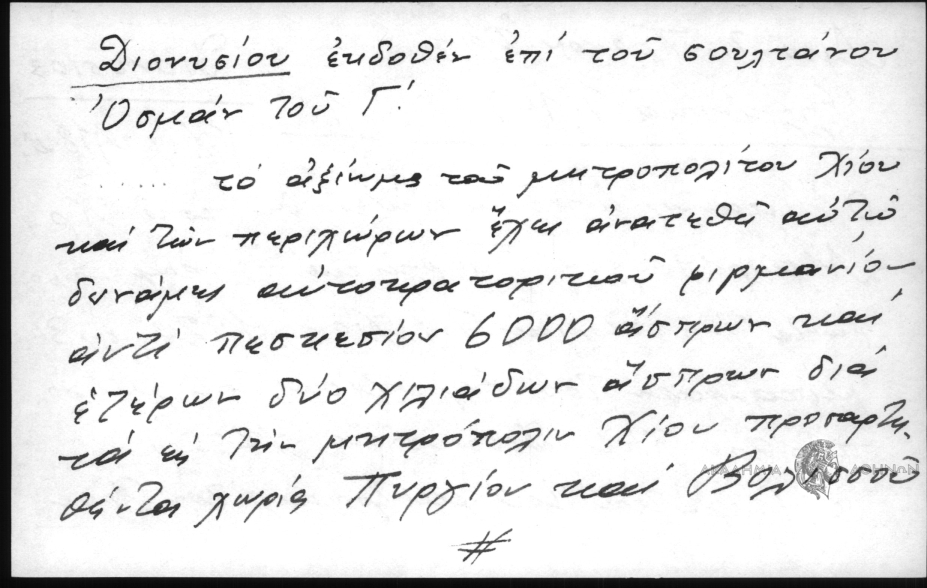 Διονυσίου ἐκδοθέν ἐπί τοῦ σουλτάνου
Ὀσμάν τοῦ Γ΄.
...... τό ἀξίωμα τοῦ μητροπολίτου Χίου
καί τῶν περιχώρων ἔχει ἀνατεθῆ αὐτῷ
δυνάμει αὐτοκρατορικοῦ φιρμανίου
ἀντί πεσκεσίου 6000 ἄσπρων καί
ἑτέρων δύο χιλιάδων ἄσπρων διά
τά εἰς τήν μητρόπολιν Χίου προσαρτη-
θέντα χωρία Πυργίου καί Βολισσοῦ
#
ΑΚΑΔΗΜΙΑ ΑΘΗΝΩΝ